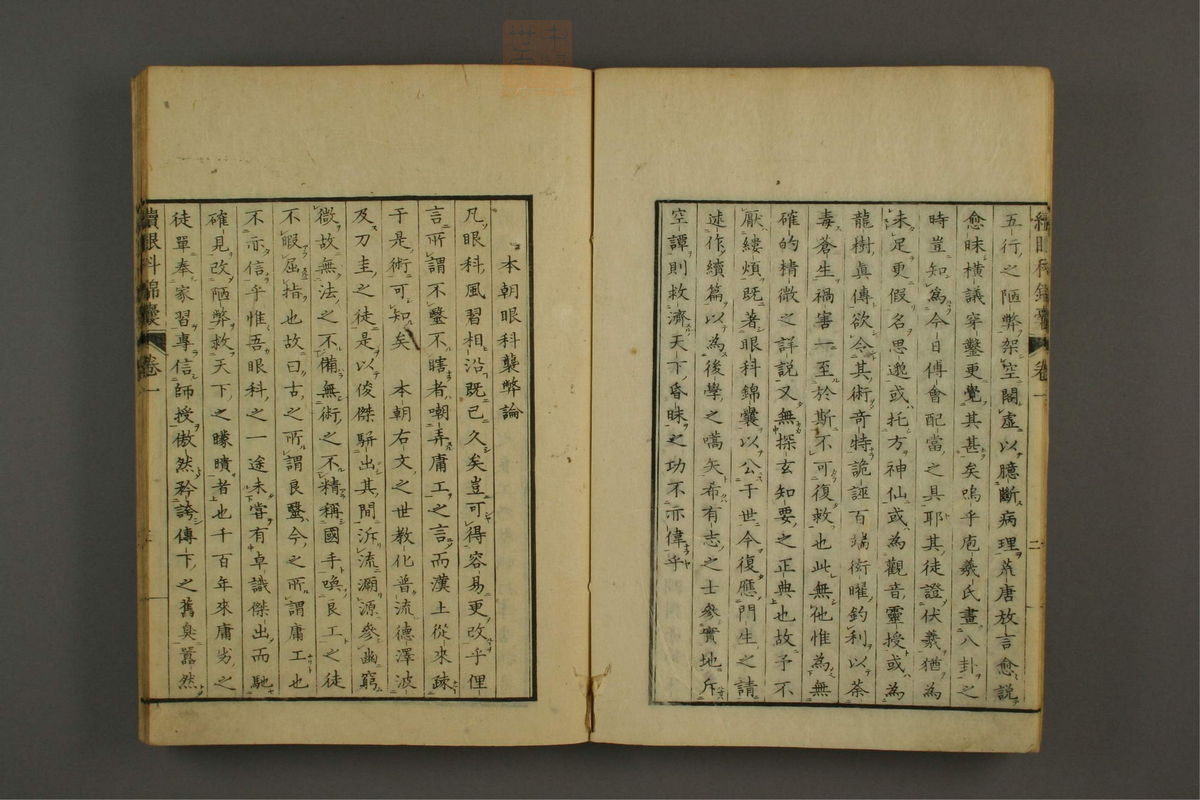 五行之陋弊架空閣虛以臆斷病理荒唐放言愈説
愈昧橫議穿鑿更覺其甚矣嗚乎庖羲氏畫八卦之
時豈知為今日傅會配當之具耶其徒證伏羲猶為
未足更假名思邈或托方神仙或為觀音靈授或為
龍樹眞傳欲令其術奇特詭誣百端衒曜釣利以荼
毒蒼生禍害一至於斯不可復救也此無他惟為無
確的精微之詳説又無探玄知要之正典也故予不
厭縷煩既著眼科錦囊以公于世今復應門生之請
述作續篇以為後學之嚆矢希有志之士參實地斥
空譚則救濟天下昏昧之功不亦偉乎
續眼科錦囊 卷一 二
本朝眼科襲弊論
凡眼科風習相沿既已久矣豈可得容易更改乎俚
言所謂不鑒不瞎者嘲弄庸工之言而漢土從來疎
于是術可知矣 本朝右文之世教化普流德澤波
及刀圭之徒是以俊傑駢出其間泝流溯源參幽窮
微故無法之不備無術之不精稱國手喚良工之徒
不暇屈指也故曰古之所謂良醫今之所謂庸工也
不亦信乎惟吾眼科之一途未嘗有卓識傑出而馳
確見改陋弊救天下之矇瞶者也千百年來庸劣之
徒單奉家習專信師授傲然矜誇傳下之舊臭囂然
續眼科錦囊 卷一 三